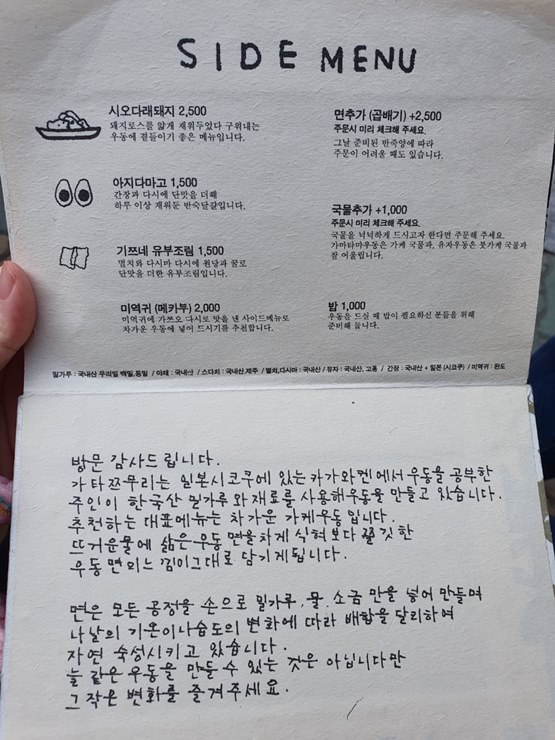 SIDE MENU
시오다래돼지 2,500
돼지로스를 얇게 재워두었다 구워내는
우동에 곁들이기 좋은 메뉴입니다.
아지다마고 1,500
간장과 다시에 단맛을 더해
하루 이상 재워둔 반숙달걀입니다.
기쯔네 유부조림 1,500
멸치와 다시마 다시에 원당과 꿀로
단맛을 더한 유부조림입니다.
미역귀 (메카부) 2,000
미역귀에 가쯔오 다시로 맛을 낸 사이드메뉴로
차가운 우동에 넣어 드시기를 추천합니다.
면추가 (곱배기) +2,500
주문시 미리 체크해 주세요.
그날 준비된 반죽양에 따라
주문이 어려울 때도 있습니다.
국물추가 +1,000
주문시 미리 체크해 주세요.
국물을 넉넉하게 드시고자 한다면 주문해 주세요.
가마타마우동은 가케 국물과, 유자우동은 붓가케 국물과
잘 어울립니다.
밥 1,000
우동을 드실 때 밥이 필요하신 분들을 위해
준비해 둡니다.
밀가루 : 국내산 우리밀 백밀,통밀 / 야채 : 국내산 / 스다치 : 국내산,제주 / 멸치,다시마 : 국내산 / 유자 : 국내산, 고흥 / 간장 : 국내산 + 일본 (시코쿠) / 미역귀 : 완도
방문 감사드립니다.
가타쯔무리는 일본시코쿠에 있는 카가와켄에서 우동을 공부한
주인이 한국산 밀가루와 재료를 사용해 우동을 만들고 있습니다.
추천하는 대표메뉴는 차가운 가케우동 입니다.
뜨거운물에 삶은 우동 면을 차게 식혀 보다 쫄깃한
우동 면의 느낌이 그대로 담기게 됩니다.
면은 모든 공정을 손으로 밀가루, 물, 소금 만을 넣어 만들며
나날의 기온이나 습도의 변화에 따라 배합을 달리하여
자연 숙성시키고 있습니다.
늘 같은 우동을 만들 수 있는 것은 아닙니다만
그 작은 변화를 즐겨주세요.